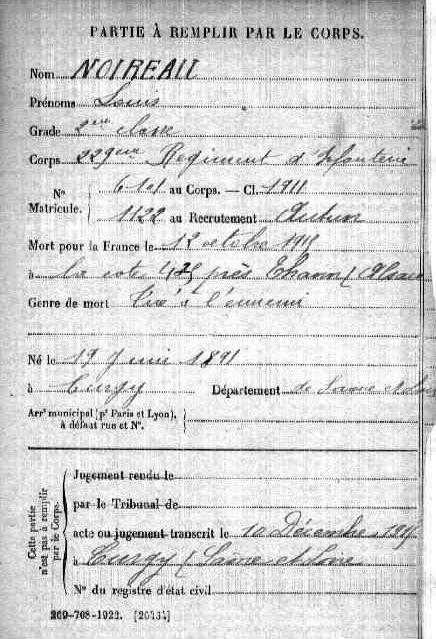 PARTIE À REMPLIR PAR LE CORPS.
Nom NOIREAU
Prénoms Louis
Grade 2eme classe
Corps 229eme Regiment d'Infanterie
N° Matricule. 6101 au Corps. — Cl. 1911
1122 au Recrutement Autun
Mort pour la France le 12 octobre 1915
à la cote 425 près Thann (Alsace
Genre de mort Tué à l'ennemi
Né le 19 Juin 1891
à Curgy Département de Saone et Loire
Arr' municipal (p' Paris et Lyon),
à défaut rue et N°.
Cette partie
n'est pas à remplir
par le Corps.
Jugement rendu le
par le Tribunal de
acte ou jugement transcrit le 10 Décembre 1915
à Curgy (Saone et Loire
N° du registre d'état civil
269-708-1922. [26434]